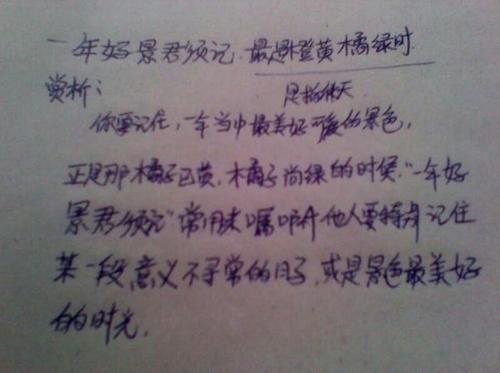 一年好景君须记.最是橙黄橘绿时.
赏析:
是指秋天
你要记住,一年当中最美好可爱的景色,
正是那橘子已黄.橘子尚绿的时候."一年好
景君须记"常用来嘱咐他人要特别记住
某一段意义不寻常的日子,或是景色最美好
的时光.